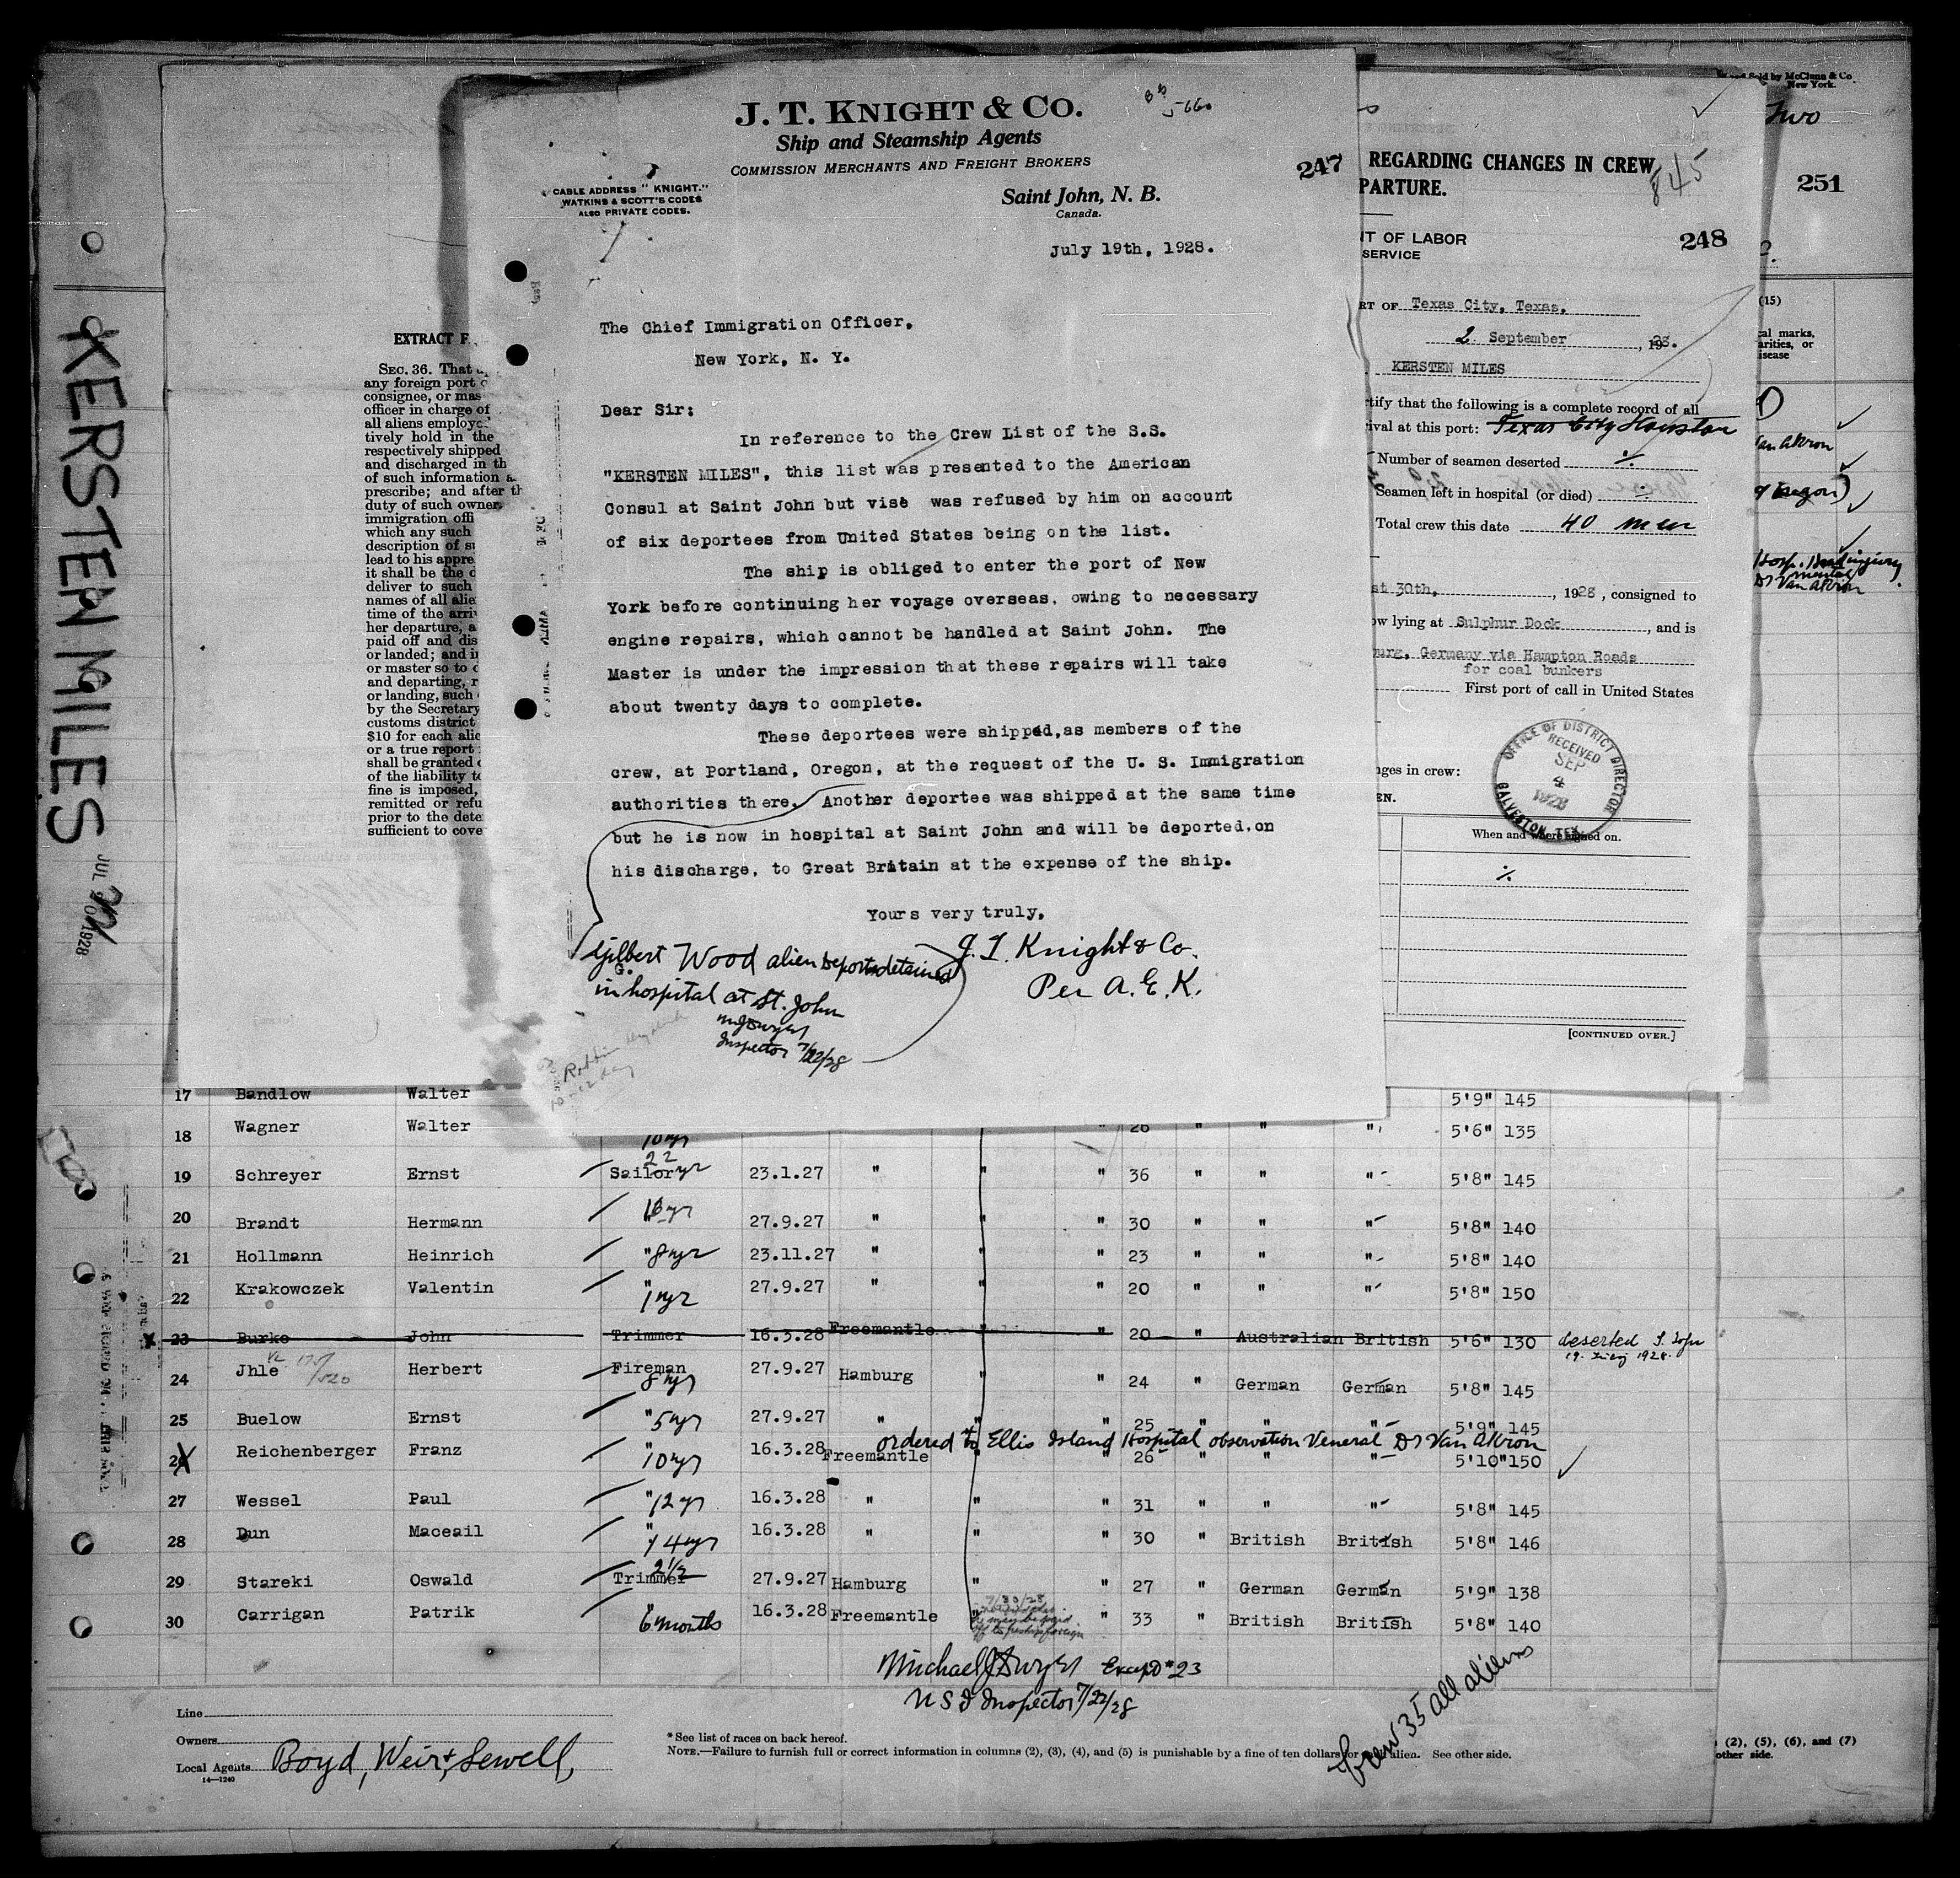 J. T. KNIGHT & CO.
Ship and Steamship Agents
COMMISSION MERCHANTS AND FREIGHT BROKERS
CABLE ADDRESS "KNIGHT."
WATKINS & SCOTT'S CODES
ALSO PRIVATE CODES.
Saint John, N. B.
Canada.
247
July 19th, 1928.
The Chief Immigration Officer,
New York, N. Y.
Dear Sir:
In reference to the Crew List of the S.S.
"KERSTEN MILES", this list was presented to the American
Consul at Saint John but visé was refused by him on account
of six deportees from United States being on the list.
The ship is obliged to enter the port of New
York before continuing her voyage overseas, owing to necessary
engine repairs, which cannot be handled at Saint John. The
Master is under the impression that these repairs will take
about twenty days to complete.
These deportees were shipped,as members of the
crew, at Portland, Oregon, at the request of the U. S. Immigration
authorities there. Another deportee was shipped at the same time
but he is now in hospital at Saint John and will be deported,on
his discharge, to Great Britain at the expense of the ship.
Yours very truly,
J. T. Knight & Co.
Per A. E. K.
Gilbert G. Wood alien deportee detained
in hospital at St. John
MJ Dwyer
Inspector 7/22/28
KERSTEN MILES
JUL 20 1928
EXTRACT F
SEC. 36. That
any foreign port
consignee, or mas
officer in charge of
all aliens employ
tively hold in the
respectively shipped
and discharged in th
of such information
prescribe; and after th
duty of such owner,
immigration offi
which any such
description of su
lead to his appre
it shall be the d
deliver to such
names of all alie
time of the arri
her departure, a
paid off and dis
or landed; and i
or master so to d
and departing, r
or landing, such
by the Secretary
customs district
$10 for each alie
or a true report
shall be granted
of the liability to
fine is imposed,
remitted or refu
prior to the dete
sufficient to cove
REGARDING CHANGES IN CREW
PARTURE.
845
248
T OF LABOR
SERVICE
RT OF Texas City, Texas.
2 September , 1928.
KERSTEN MILES
tify that the following is a complete record of all
ival at this port: Texas City Houston
Number of seamen deserted ./.
Seamen left in hospital (or died) ./.
Total crew this date 40 men
st 30th, , 1928, consigned to
ow lying at Sulphur Dock , and is
urg, Germany via Hampton Roads
for coal bunkers
First port of call in United States
OFFICE OF DISTRICT DIRECTOR
RECEIVED
SEP
4
1928
GALVESTON, TEX.
nges in crew:
EN.
When and where signed on.
./.
[CONTINUED OVER.]
and Sold by McClunn & Co
New York.
Two
251
(15)
cal marks,
arities, or
isease
Van Akron
Oregon)
Dr Van Akron
17 Bandlow Walter 5'9" 145
18 Wagner Walter 10 yr " 26 " " " 5'6" 135
19 Schreyer Ernst Sailor 22 yr 23.1.27 " " " 36 " " " 5'8" 145
20 Brandt Hermann " 16 yr 27.9.27 " " " 30 " " " 5'8" 140
21 Hollmann Heinrich " 8 yr 23.11.27 " " " 23 " " " 5'8" 140
22 Krakowczek Valentin " 1 yr 27.9.27 " " " 20 " " " 5'8" 150
23 Burke John Trimmer 16.3.28 Freemantle " " 20 " Australian British 5'6" 130 deserted S. John
19. July 1928.
24 Jhle Herbert Fireman 8 yr 27.9.27 Hamburg " " 24 " German German 5'8" 145
25 Buelow Ernst " 5 yr 27.9.27 " " " 25 " " " 5'9" 145
ordered to Ellis Island Hospital observation Veneral Dr Van Akron
26 Reichenberger Franz " 10 yr 16.3.28 Freemantle " " 26 " " " 5'10" 150
27 Wessel Paul " 12 yr 16.3.28 " " " 31 " " " 5'8" 145
28 Dun Maceail " 4 yr 16.3.28 " " " 30 " British British 5'8" 146
29 Stareki Oswald Trimmer 2½ 27.9.27 Hamburg " " 27 " German German 5'9" 138
30 Carrigan Patrik " 6 months 16.3.28 Freemantle " " 33 " British British 5'8" 140
Michael J Dwyer Except #23
U S I Inspector 7/22/28
Crew 35 all aliens
Line
Owners
Local Agents Boyd, Weir & Sewell,
14—1240
* See list of races on back hereof.
NOTE.—Failure to furnish full or correct information in columns (2), (3), (4), and (5) is punishable by a fine of ten dollars for each alien. See other side.
(2), (5), (6), and (7)
other side.